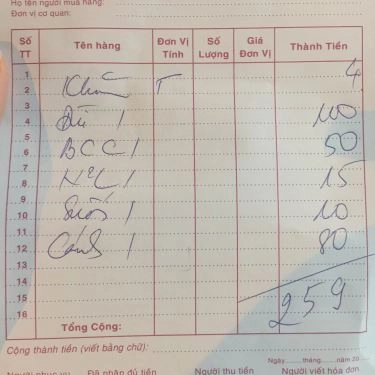 Họ tên người mua hàng:
Đơn vị cơ quan:
Số TT Tên hàng Đơn Vị Tính Số Lượng Giá Đơn Vị Thành Tiền
1
2 Khăn T 4
3
4 1 100
5
6 BCC 1 50
7
8 1 15
9
10 1 10
11
12 Canh 1 80
13
14
15 259
16
Tổng Cộng:
Cộng thành tiền (viết bằng chữ):
Ngày tháng năm 20
Người phục vụ Đã nhận đủ tiền Người thu tiền Người viết hóa đơn